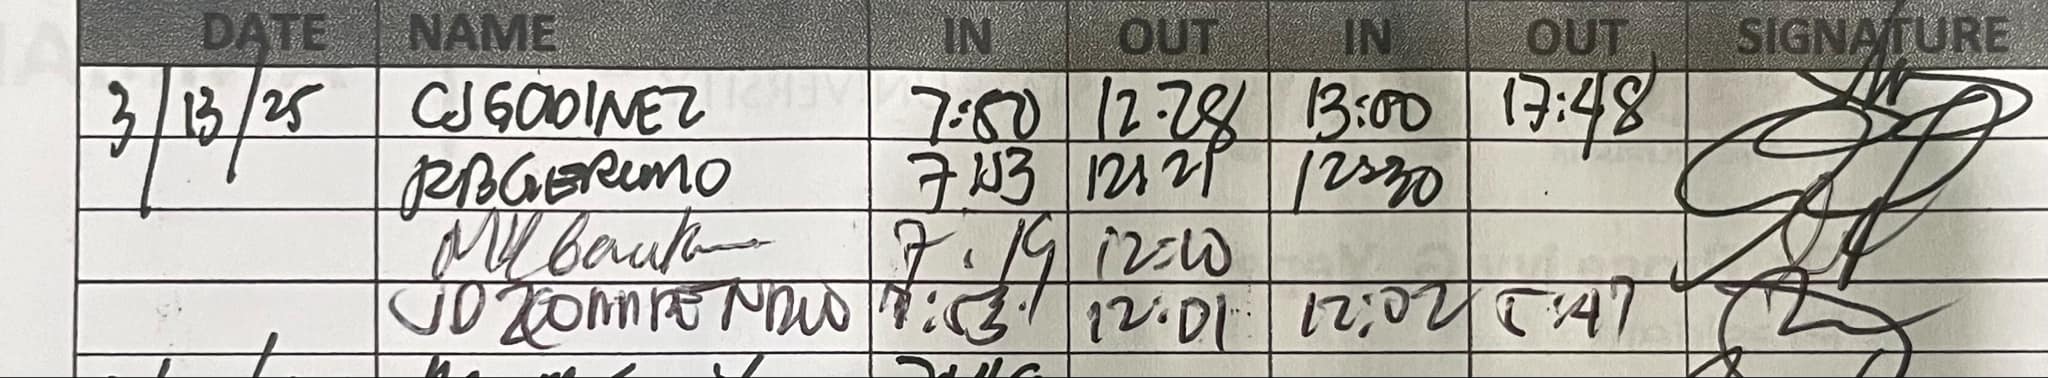 DATE NAME IN OUT IN OUT SIGNATURE
3/13/25 CJ GODINEZ 7:50 12:28 13:00 17:48
RB GERUMO 7:43 12:21 12:30
7:19 12:10
JD 7:53 12:01 12:02 5:47